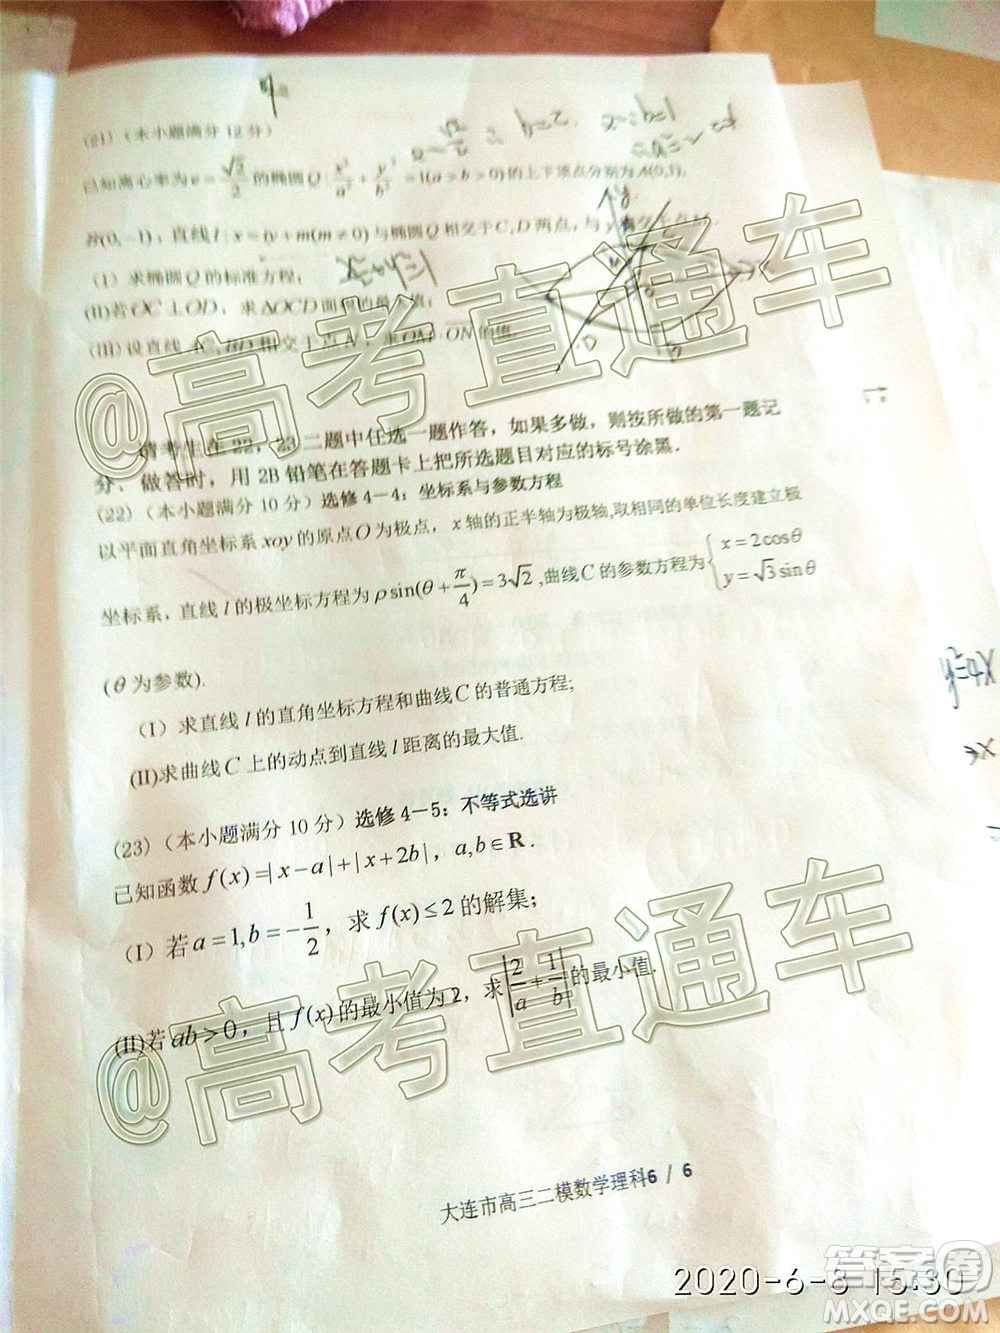 (21)（本小题满分 12 分）
已知离心率为 e = √2/2 的椭圆 Q : x²/a² + y²/b² = 1(a > b > 0) 的上下顶点分别为 A(0,1),
B(0,−1), 直线 l : x = ty + m(m ≠ 0) 与椭圆 Q 相交于 C, D 两点, 与 y
(I) 求椭圆 Q 的标准方程;
(II)若 OC ⊥ OD, 求 ΔOCD 面积的最 值;
(III) 设直线 AC, BD 相交于点 N, 求 OM · ON 的值.
请考生在 22, 23 二题中任选一题作答, 如果多做, 则按所做的第一题记
分. 做答时, 用 2B 铅笔在答题卡上把所选题目对应的标号涂黑.
(22)（本小题满分 10 分）选修 4－4: 坐标系与参数方程
以平面直角坐标系 xoy 的原点 O 为极点, x 轴的正半轴为极轴,取相同的单位长度建立极
坐标系, 直线 l 的极坐标方程为 ρ sin(θ + π/4) = 3√2 ,曲线 C 的参数方程为 { x = 2cosθ y = √3 sinθ
(θ 为参数).
(I) 求直线 l 的直角坐标方程和曲线 C 的普通方程;
(II)求曲线 C 上的动点到直线 l 距离的最大值.
(23)（本小题满分 10 分）选修 4－5: 不等式选讲
已知函数 f(x) =| x − a | + | x + 2b |, a,b ∈ R .
(I) 若 a = 1, b = −1/2, 求 f(x) ≤ 2 的解集;
(II)若 ab > 0, 且 f(x) 的最小值为 2, 求 |2/a + 1/b| 的最小值.
大连市高三二模数学理科6 / 6
y²=4x
@高考直通车
@高考直通车
答案圈
MXQE.COM
2020-6-8 15:30